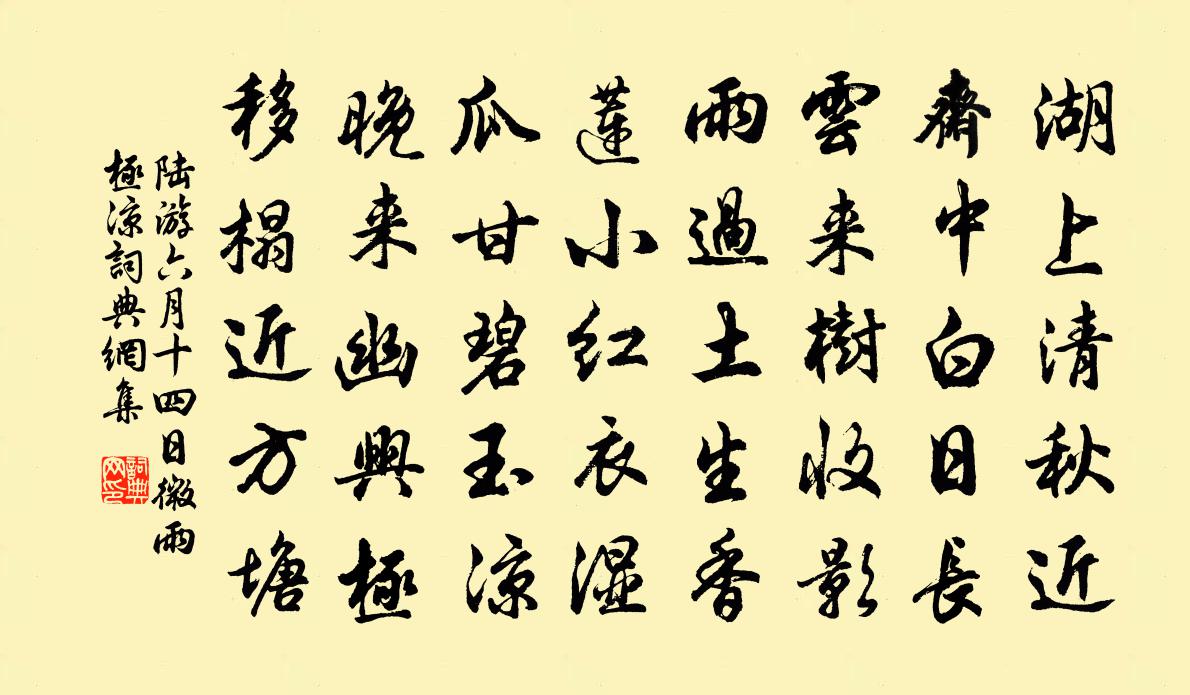 湖上清秋近
齋中白日長
雲来樹收影
雨過土生香
蓮小紅衣濕
瓜甘碧玉涼
晚来幽興極
移榻近方塘
陆游六月十四日微雨
極涼詞典網集
詞典
网